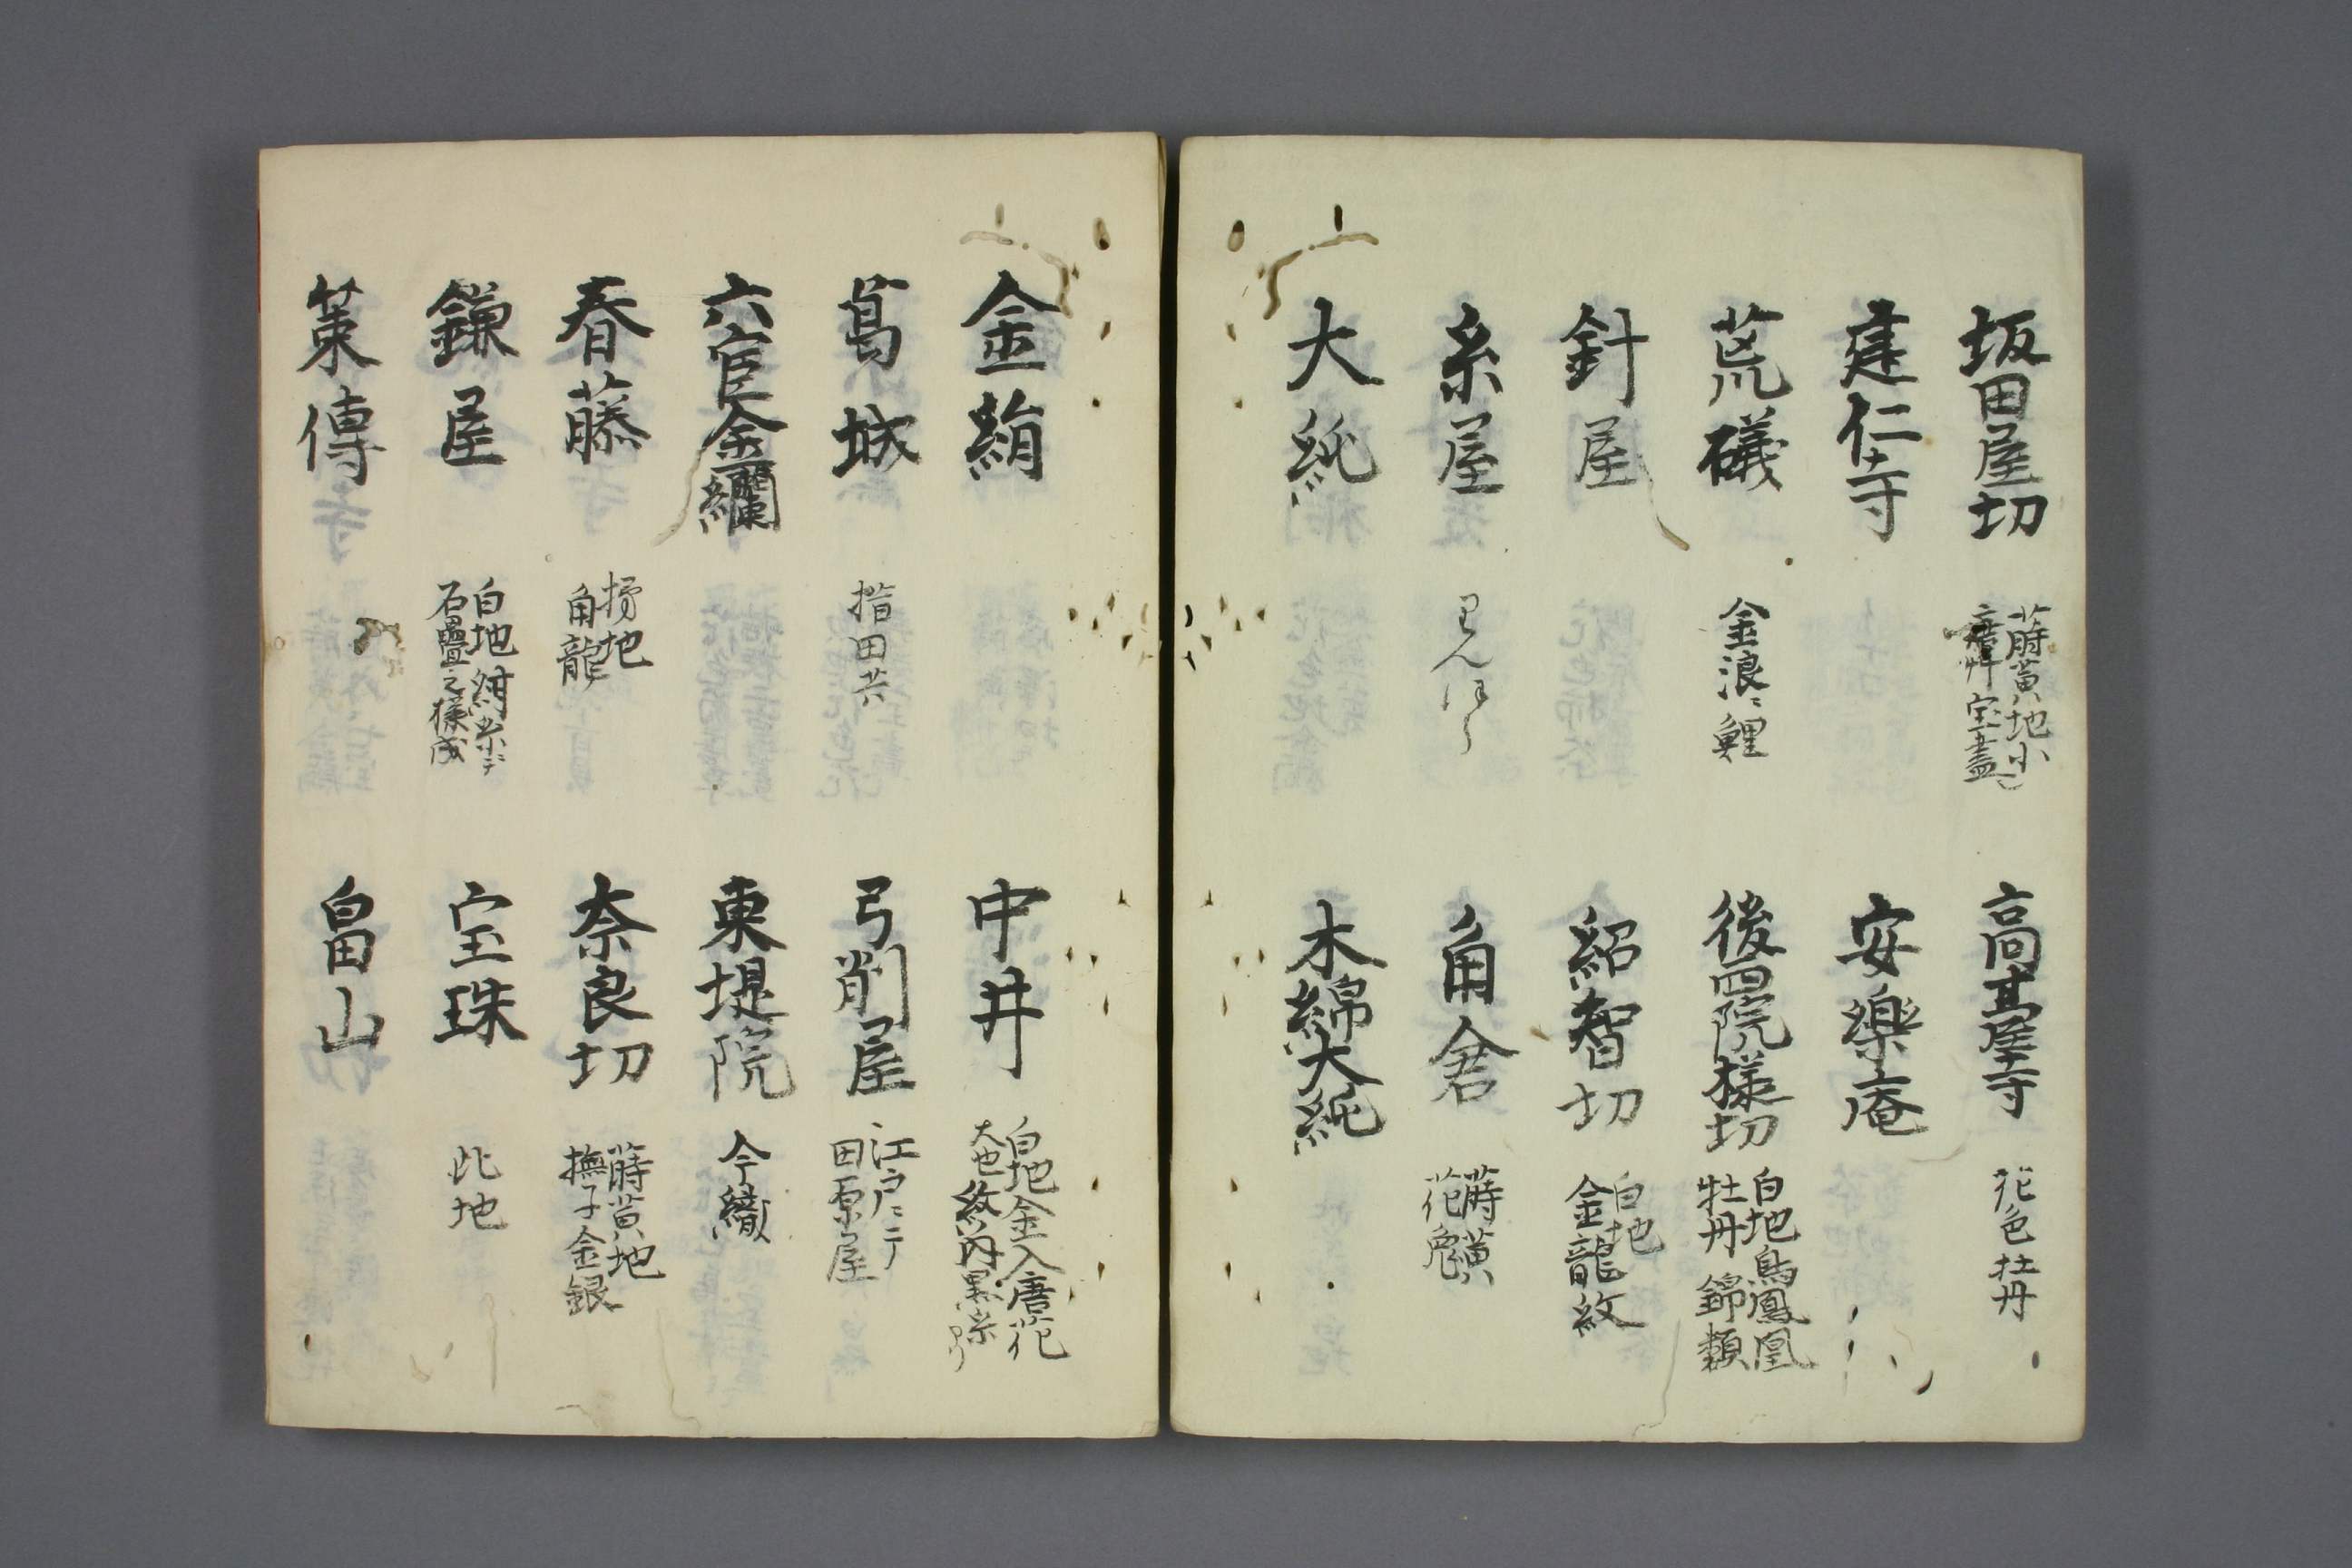 坂田屋切
蒔黄地小
唐艸宝盡
高臺寺
花色牡丹
建仁寺
安樂庵
荒礒
金浪ニ鯉
後四院様切
白地鳥鳳凰
牡丹錦類
針屋
紹智切
白地
金龍紋
糸屋
角倉
蒔黄
花兎
大純
木綿大純
金絹
中井
白地金入唐花
大也紋内黒糸
葛城
指田共
弓削屋
江戸ニテ
田原屋
六官金襴
東堤院
今織
春藤
地
角龍
奈良切
蒔黄地
撫子金銀
鎌屋
白地紺糸ニテ
石疊之様成
宝珠
此地
策傳
畠山